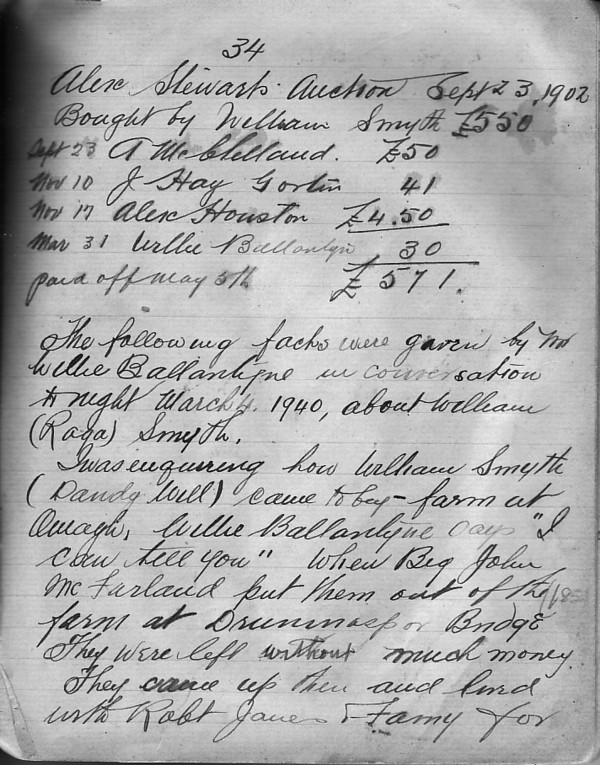 34
Alex Stewarts Auction Sept 23, 1902
Bought by William Smyth £550
Sept 23 A McClelland. £50
Nov 10 J Hay Gortin 41
Nov 17 Alex Houston £4.50
Mar 31 Willie Ballantyn 30
paid off may 5th £571.
The following facts were given by Mr
Willie Ballantyne in conversation
to night March 4. 1940, about William
(Raga) Smyth.
I was enquiring how William Smyth
(Dandy Will) came to buy farm at
Omagh, Willie Ballantyne says "I
can tell you" when Big John
McFarland put them out of the
farm at Bridge
They were left without much money.
They came up then and lived
with Robt James & Fanny for